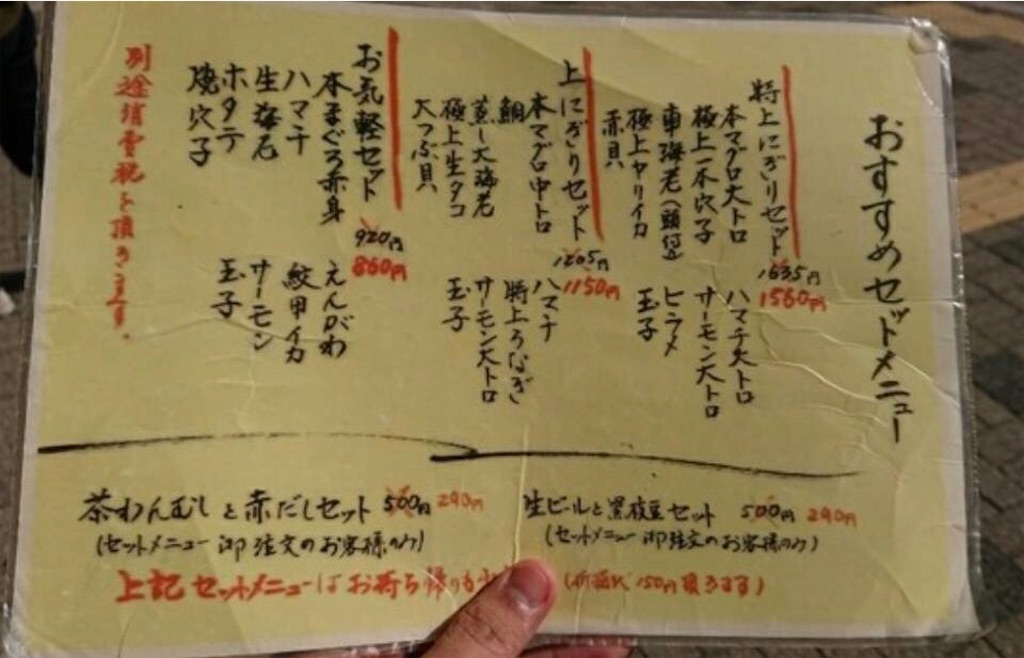 おすすめセットメニュー
特上にぎりセット
1635円
1560円
本マグロ大トロ
極上一本穴子
車海老(頭付)
極上ヤリイカ
赤貝
ハマチ大トロ
サーモン大トロ
ヒラメ
玉子
上にぎりセット
1205円
1150円
本マグロ中トロ
鯛
蒸し大海老
極上生タコ
大つぶ貝
ハマチ
特上うなぎ
サーモン大トロ
玉子
お気軽セット
920円
860円
本まぐろ赤身
ハマチ
生海老
ホタテ
焼穴子
えんがわ
紋甲イカ
サーモン
玉子
別途消費税を頂きます。
茶わんむしと赤だしセット 500円 290円
(セットメニュー御注文のお客様のみ)
生ビールと黒枝豆セット 500円 290円
(セットメニュー御注文のお客様のみ)
上記セットメニューはお持ち帰りも (折箱代150円頂きます)